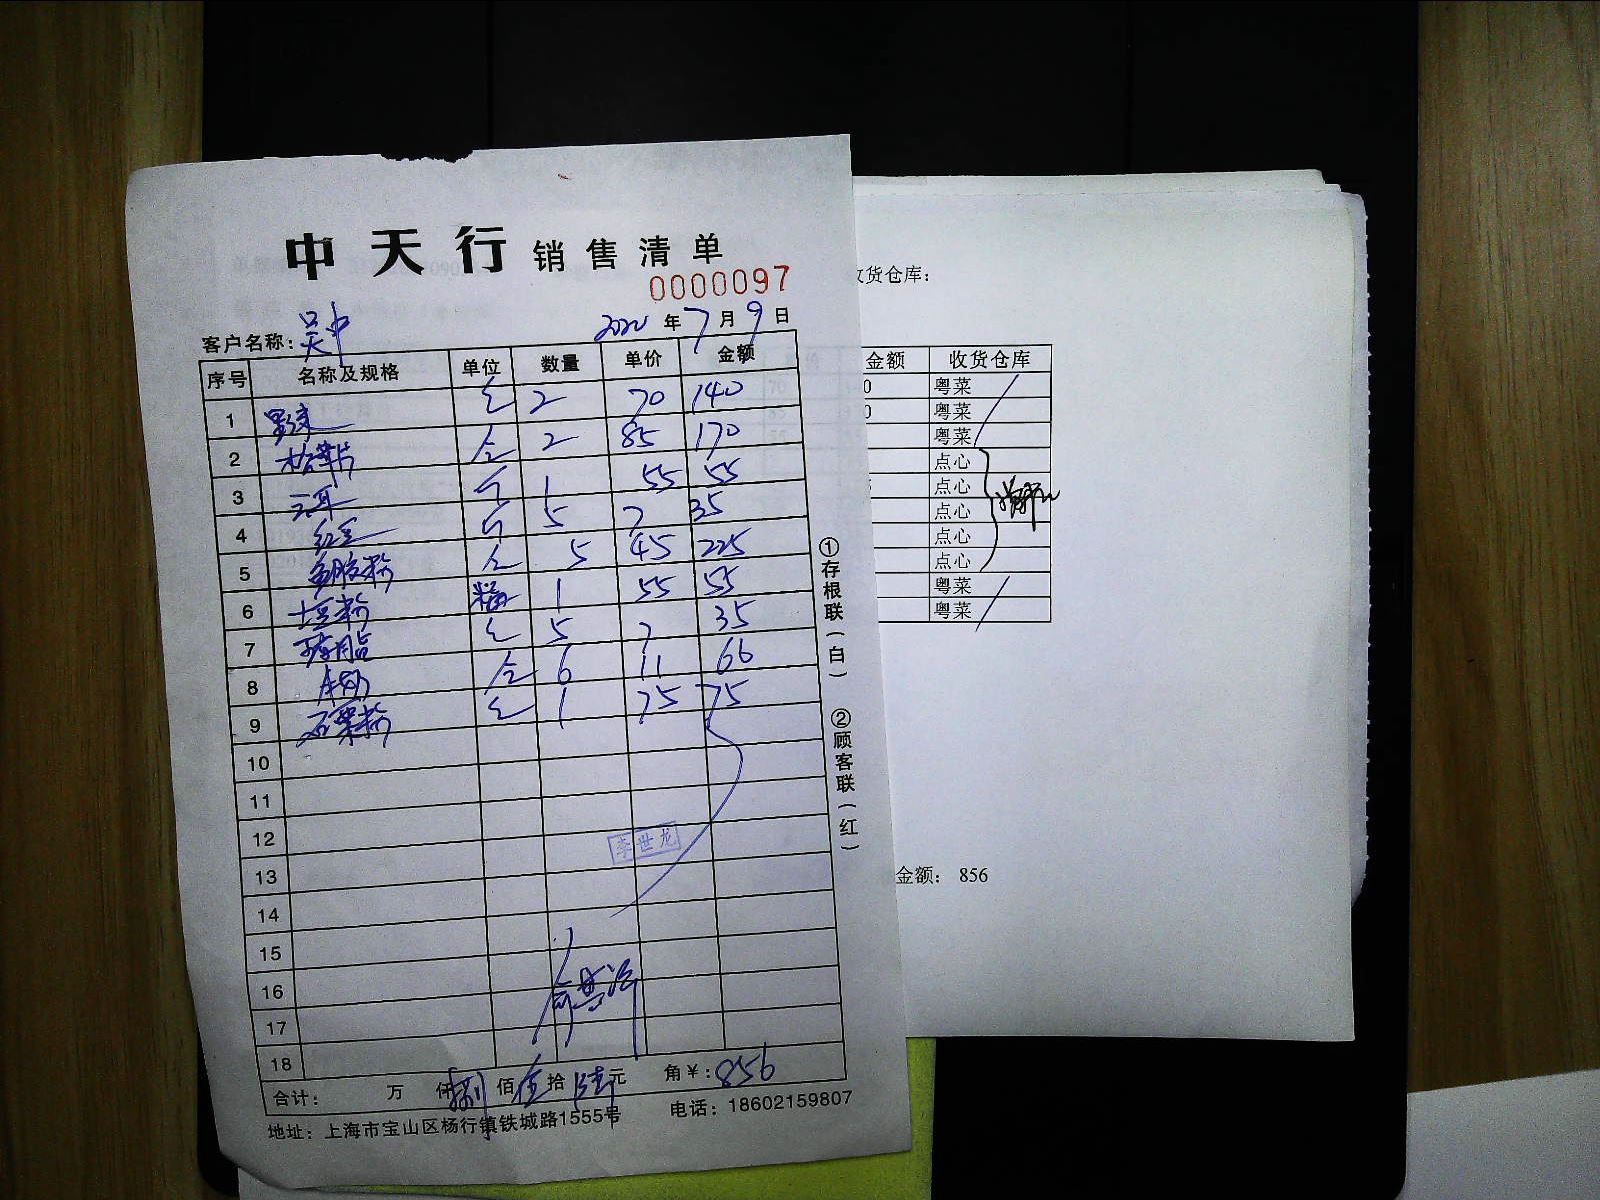 中天行 销售清单
0000097
客户名称: 吴中 2020 年 7 月 9 日
序号 名称及规格 单位 数量 单价 金额
1 2 70 140
2 2 85 170
3 云耳 1 55 55
4 红豆 5 7 35
5 鱼胶粉 5 45 225
6 生粉 箱 1 55 55
7 5 7 35
8 6 11 66
9 1 75 75
10
11
12
13
李世龙
14
15
16
17
18
合计: 万 仟 捌 佰 伍 拾 陆 元 角 ¥: 856
地址: 上海市宝山区杨行镇铁城路1555号 电话: 18602159807
①存根联(白) ②顾客联(红)
收货仓库:
金额 收货仓库
粤菜
粤菜
粤菜
点心
点心
点心
点心
点心
粤菜
粤菜
金额: 856